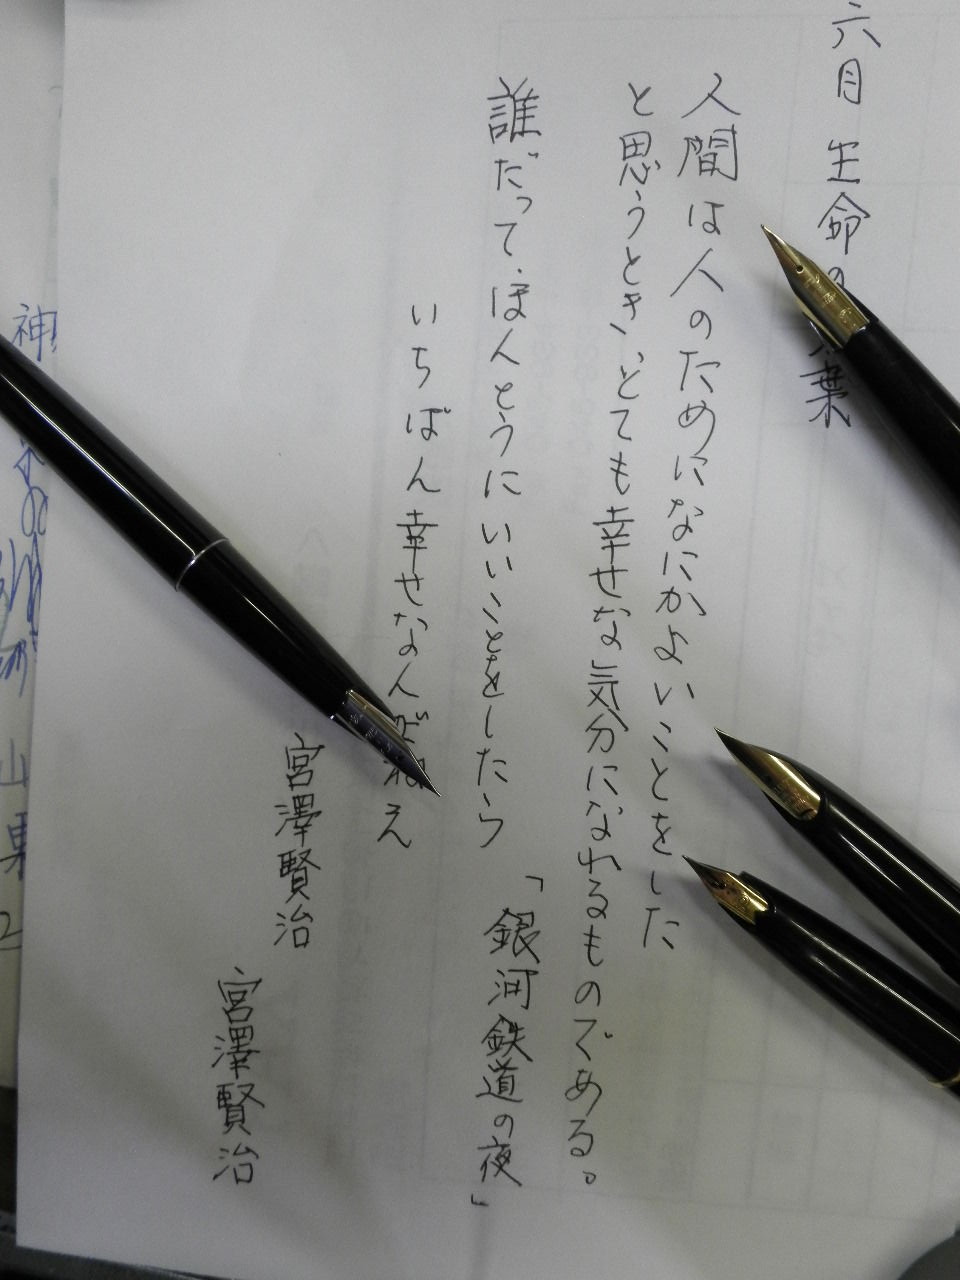 六月 生命の 葉
人間は人のためになにかよいことをした
と思うとき、とても幸せな気分になれるものである。
誰だって、ほんとうにいいことをしたら
いちばん幸せなんだねえ
「銀河鉄道の夜」
宮澤賢治
宮澤賢治
神
山